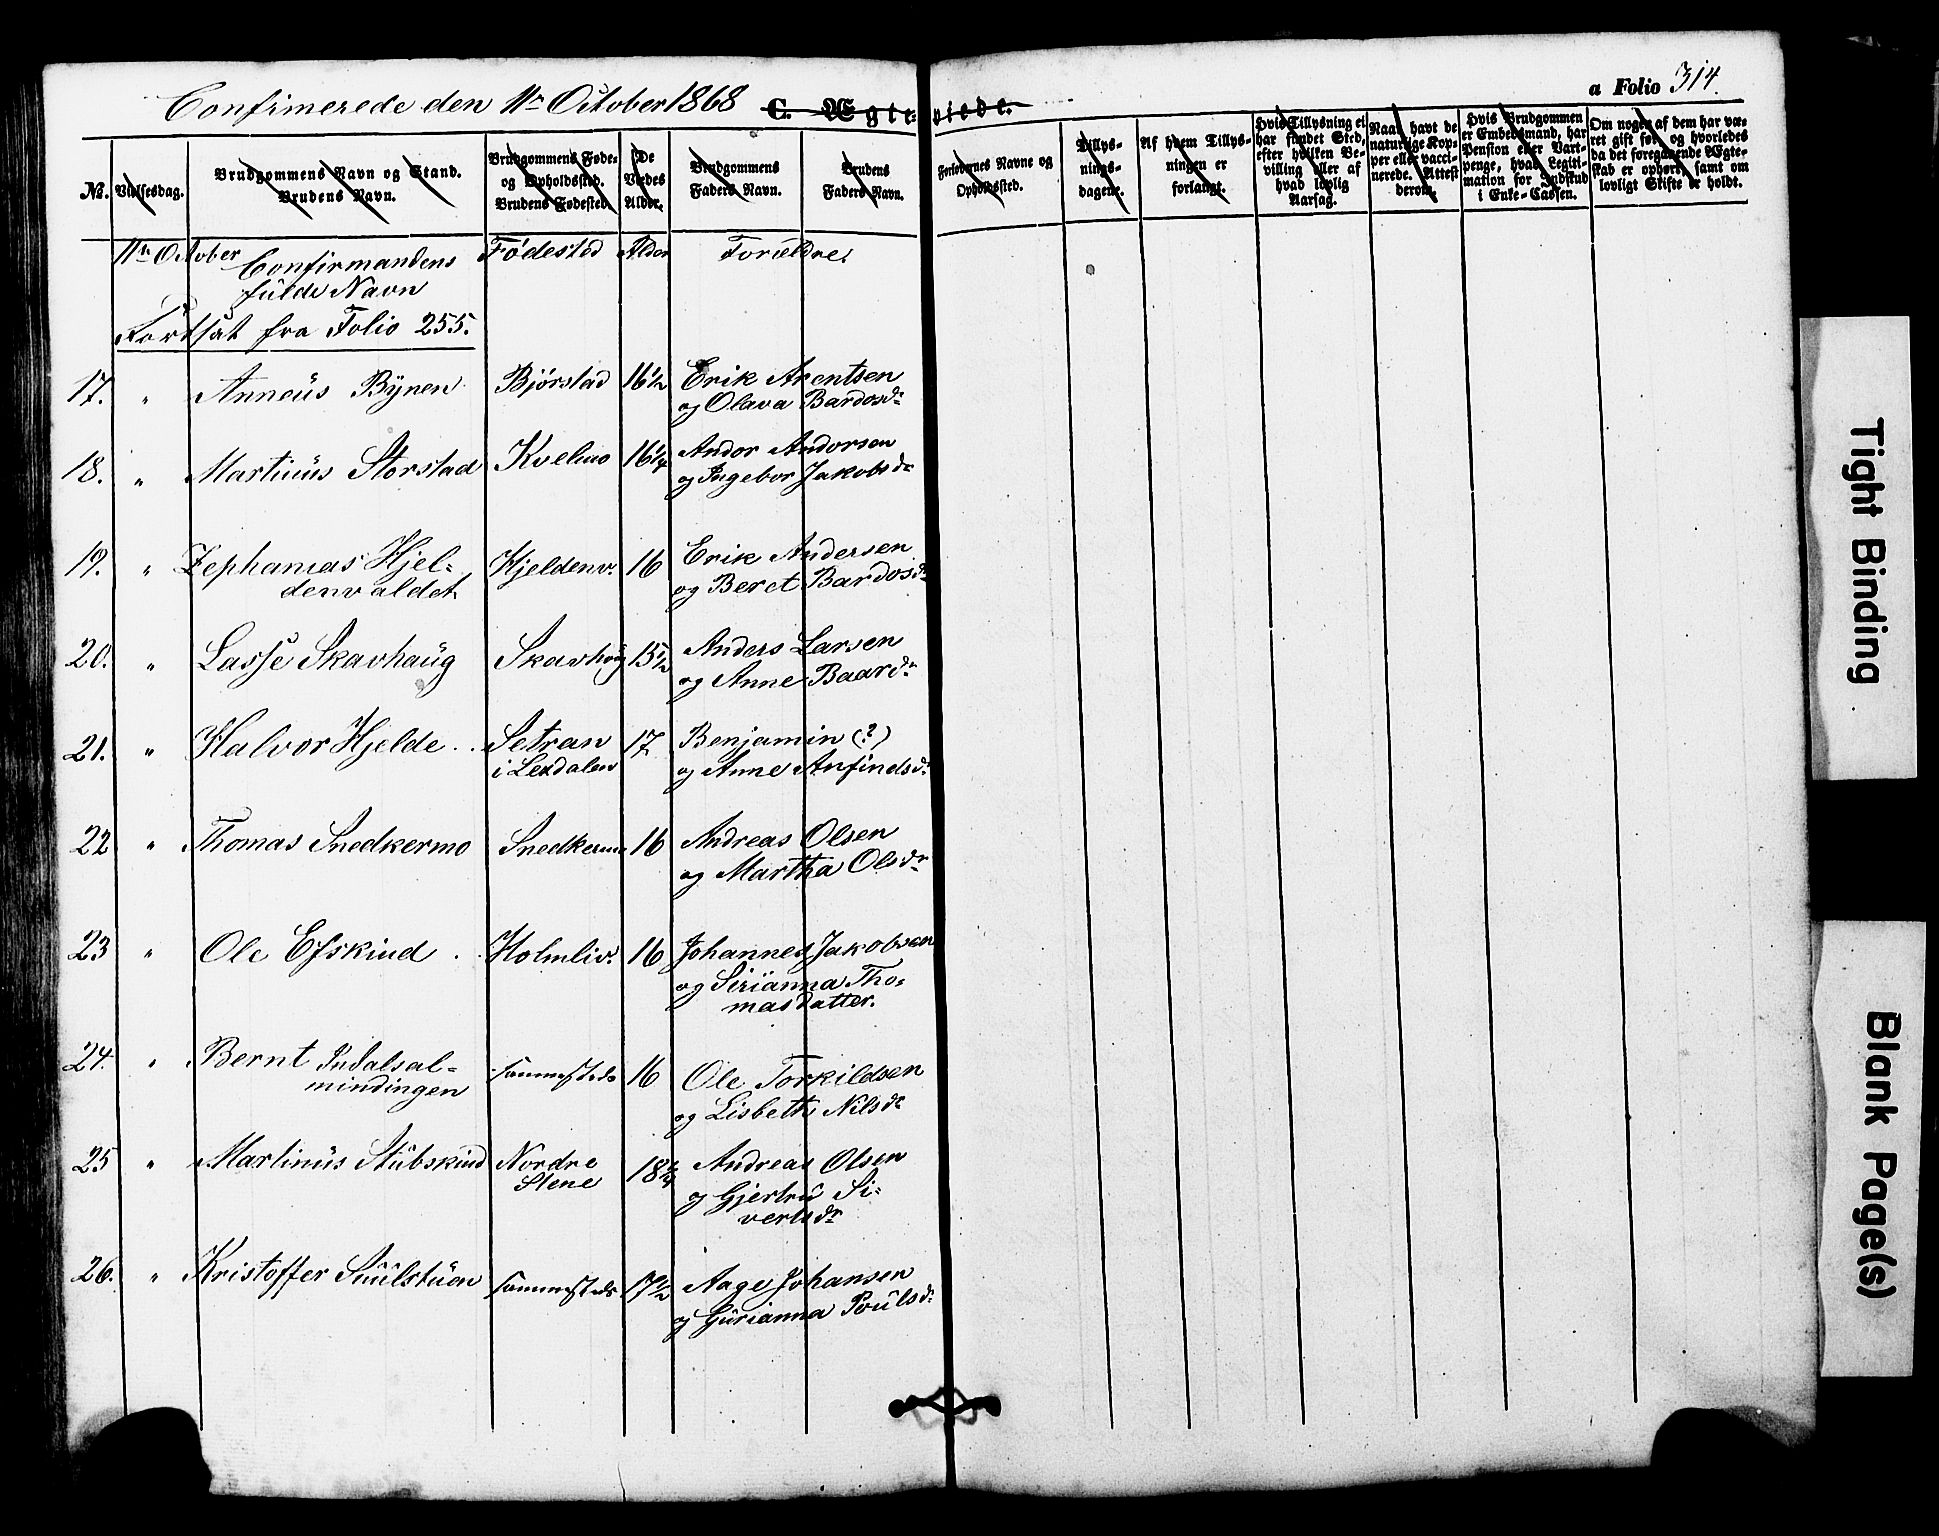 Confirmerede den 11te October 1868 C. Ægteviede.
a Folio 314.
No.
Vielsesdag.
Brudgommens Navn og Stand.
Brudens Navn.
Brudgommens Føde-
og Opholdssted.
Brudens Fødested.
De
Viedes
Alder.
Brudgommens
Faders Navn.
Brudens
Faders Navn.
Forlovernes Navne og
Opholdssted.
Tillys-
nings-
dagene.
Af hvem Tillys-
ningen er
forlangt.
Hvis Tillysning ei
har fundet Sted,
efter hvilken Be-
villing eller af
hvad lovlig
Aarsag.
Naar havt de
naturlige Kop-
per eller vacci-
nerede. Attest
derom.
Hvis Brudgommen
er Embedsmand, har
Pension eller Vart-
penge, hvad Legiti-
mation for Indskud
i Enke-Cassen.
Om nogen af dem har væ-
ret gift før, og hvorledes
da det foregaaende Ægte-
skab er ophørt, samt om
lovligt Skifte er holdt.
11te October Confirmandens Fødested Alder Forældre.
fulde Navn
Fortsat fra Folio 255.
17. " Anneus Bynen Bjørstad 16½ Erik Arentsen
og Olava Bardosdr
18. " Martinus Storstad Kvelmo 16¼ Andor Andorsen
og Ingebor Jakobsdr
19. " Zephanias Hjel- Hjeldenv. 16 Erik Andersen
denvaldet og Beret Bardosdr
20. " Lasse Skavhaug Skavhaug 15½ Anders Larsen
og Anne Baardr
21. " Halvor Hjelde Setran 17 Benjamin (?)
i Lexdalen og Anne Anfindsdr
22 " Thomas Snedkermo Snedkermo 16 Andreas Olsen
og Martha Olsdr
23 " Ole Efskind Holmliv. 16 Johannes Jakobsen
og Sirianna Tho-
masdatter.
24. " Bernt Indalsal- sammesteds 16 Ole Torkildsen
mindingen og Lisbeth Nilsdr
25 " Martinus Stubskind Nordre 18 Andreas Olsen
Stene og Gjertru Si-
vertsdr
26. " Kristoffer Suulstuen sammesteds 17½ Aage Johansen
og Gurianna Poulsdr
Tight Binding
Blank Page(s)